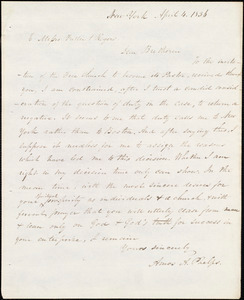 New York April 4. 1836
To Messrs
Dear Brethren
To the invita-
tion of the Free Church to become its Pastor, received through
you, I am constrained, after I trust a candid consid-
eration of the question of duty in the case, to return a
negative. It seems to me that duty calls me to New
York rather than to Boston. And after saying this, I
suppose it needless for me to assign the reasons
which have led me to this decision. Whether I am
right in my decision time only can show. In the
mean time, with the most sincere desires for
your prosperity as individuals & a church, with
prayer that you will utterly cease from man
& lean only on God & God's truth for success in
your enterprise, I remain
Yours sincerely,
Amos A. Phelps.